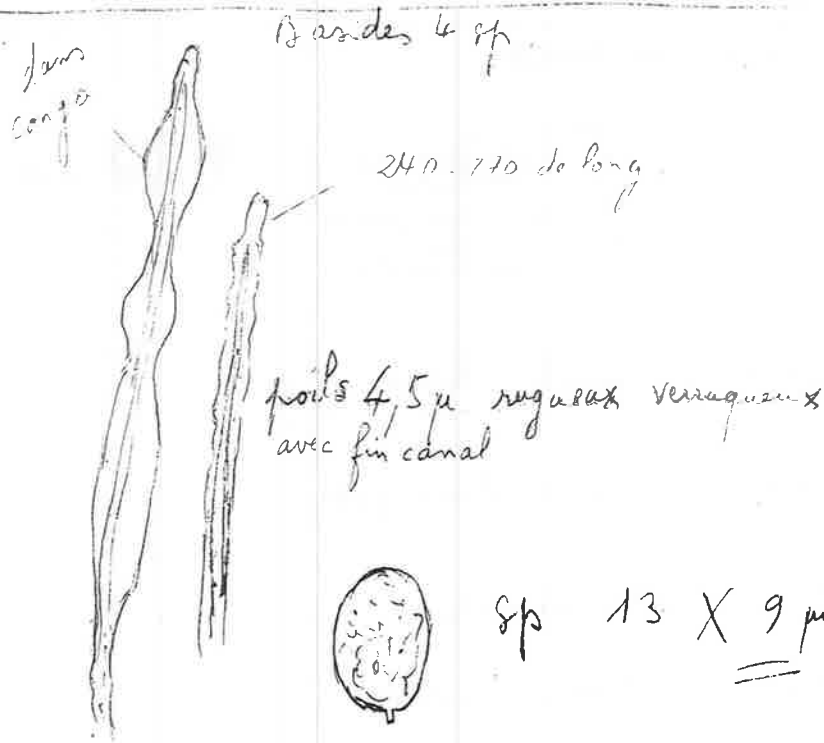 Basides 4 sp.
dans
congo
240-270 de long
poils 4,5 µ rugueux verruqueux
avec fin canal
sp 13 X 9 µ